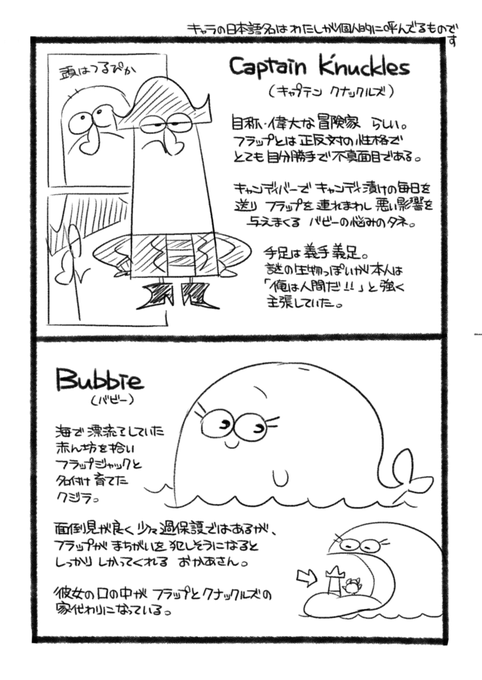 キャラの日本語名はわたしが個人的に呼んでるものです
頭はつるぴか
Captain K'nuckles
(キャプテン クナックルズ)
自称・偉大な冒険家 らしい。
フラップとは正反対の性格で
とても自分勝手で不真面目である。
キャンディバーで キャンディ漬けの毎日を
送り フラップを 連れまわし 悪い影響を
与えまくる バビーの悩みのタネ。
手足は義手義足。
謎の生物っぽいが本人は
「俺は人間だ!!」と強く
主張していた。
Bubbie
(バビー)
海で漂流していた
赤ん坊を拾い
フラップジャックと
名付け育てた
クジラ。
面倒見が良く 少々過保護ではあるが、
フラップが まちがいを 犯しそうになると
しっかり しかってくれる おかあさん。
彼女の口の中が フラップとクナックルズの
家代わりになっている。